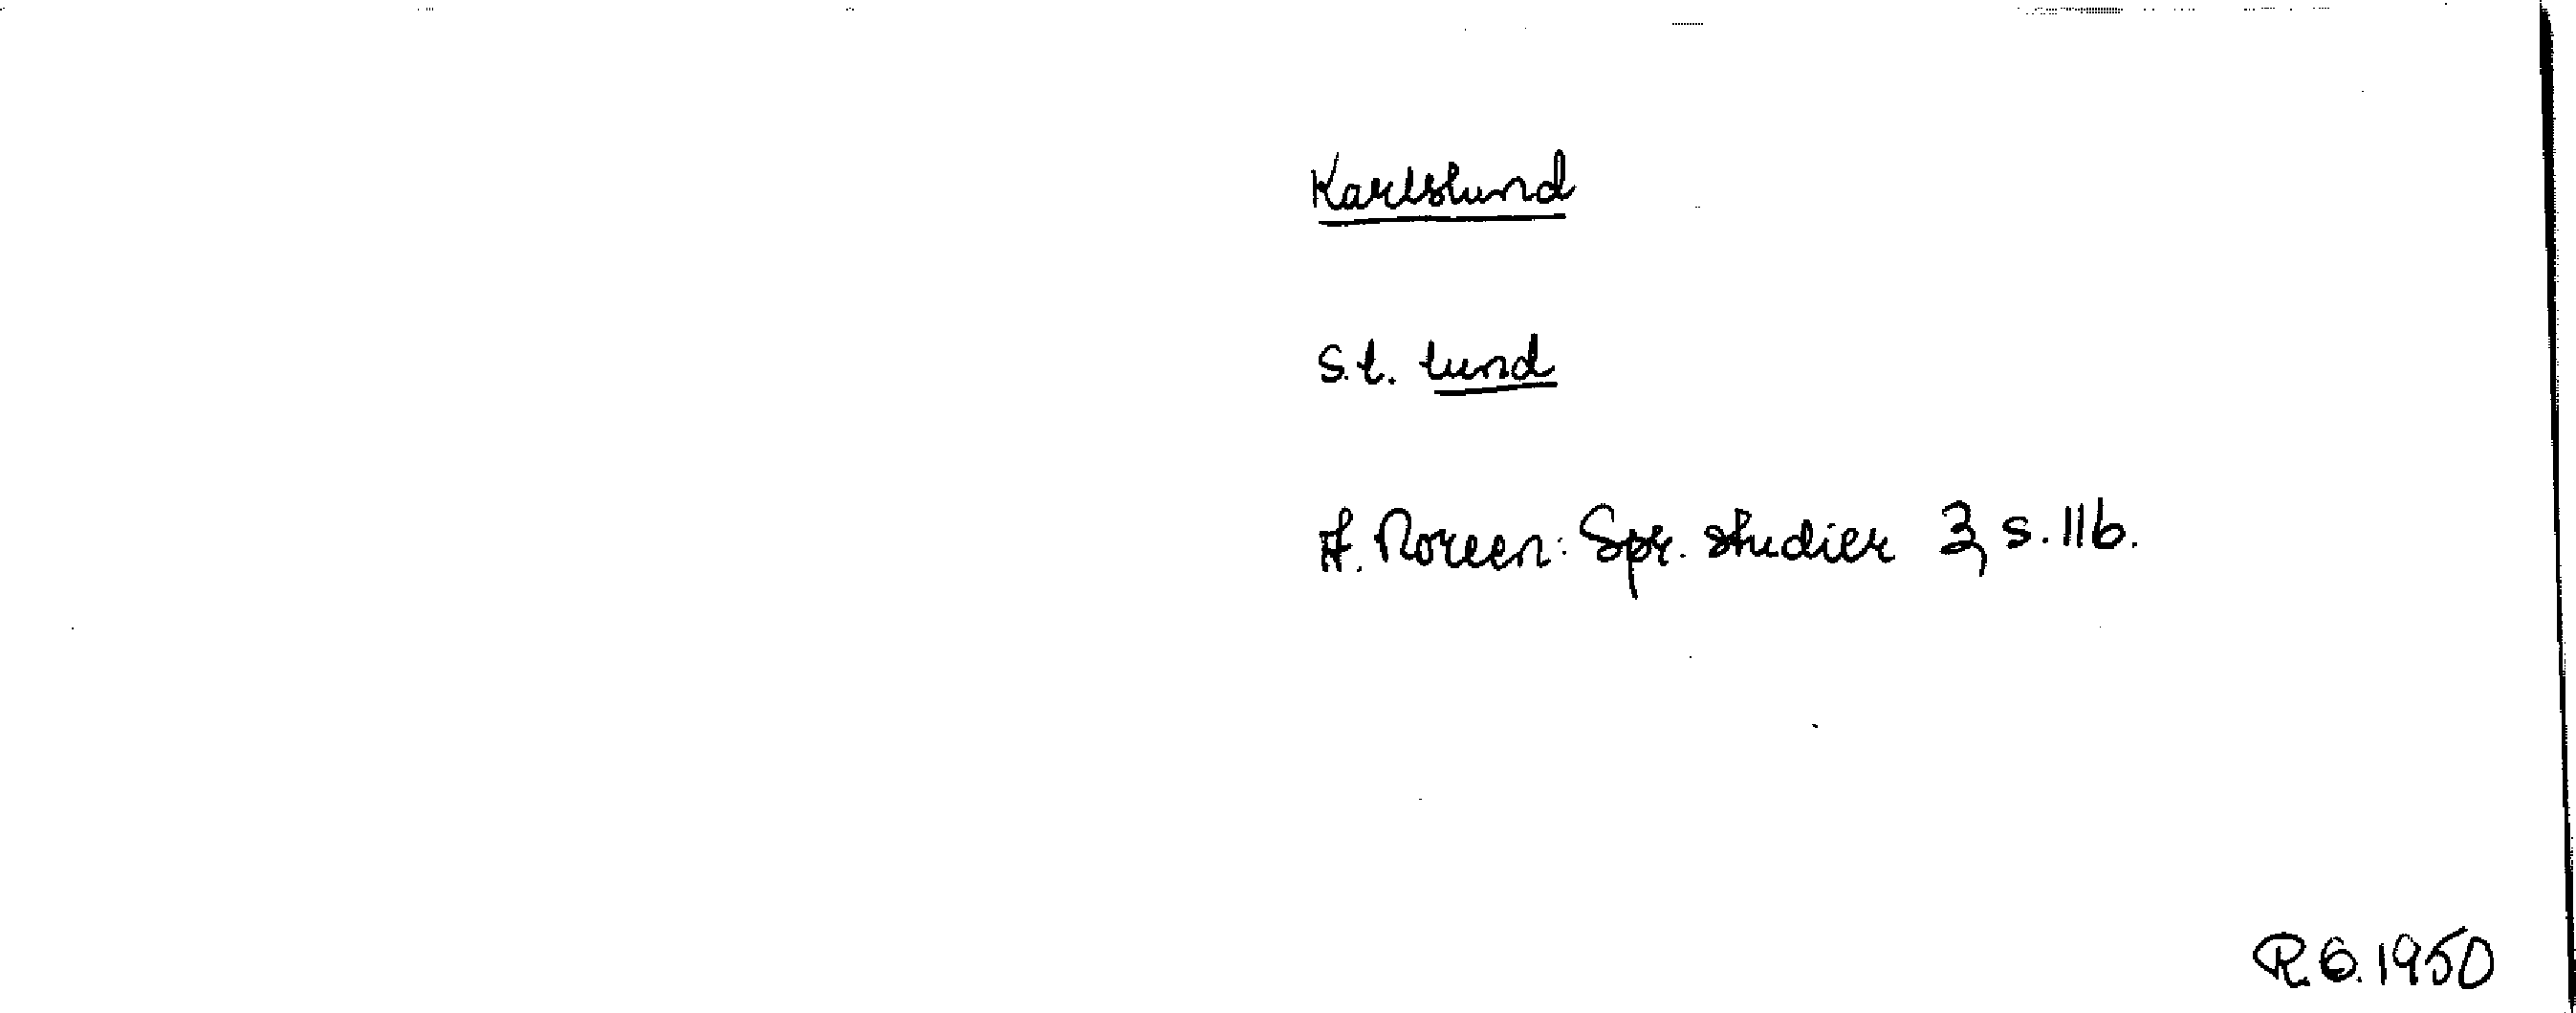 Karlslund
s.l. lund
A. Noreen: Spr. studier 3, s. 116.
R.G. 1950